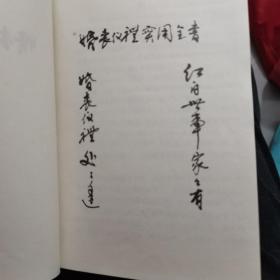 婚丧仪礼实用全书
红白世事家家有
婚丧仪礼处处逢